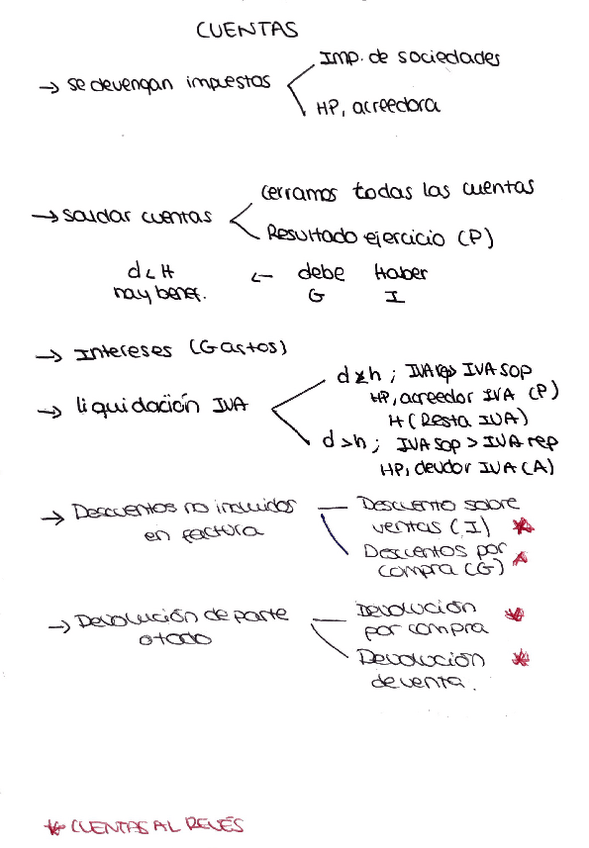 CUENTAS
→ se devengan impuestos
Imp. de sociedades
HP, acreedora
→ saldar cuentas
cerramos todas las cuentas
Resultado ejercicio (P)
d < H ← debe Haber
hay benef. G I
→ Intereses (Gastos)
→ liquidación IVA
d < h ; IVA rep > IVA sop
HP, acreedor IVA (P)
H (Resta IVA)
d > h ; IVA sop > IVA rep
HP, deudor IVA (A)
→ Descuentos no incluidos
en factura
Descuento sobre
ventas (I) *
Descuentos por
compra (G) *
→ Devolución de parte
o todo
Devolución
por compra *
Devolución *
de venta.
* CUENTAS AL REVÉS